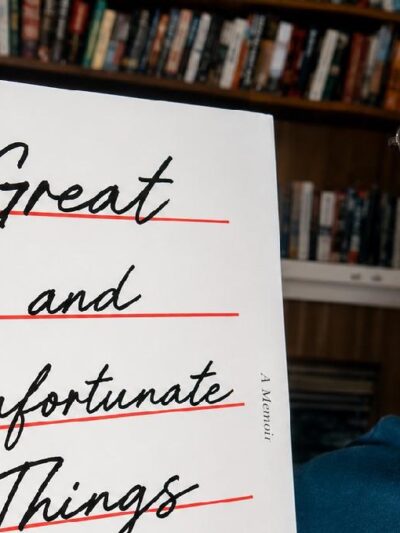 Great
and
nfortunate
Things
A Memoir